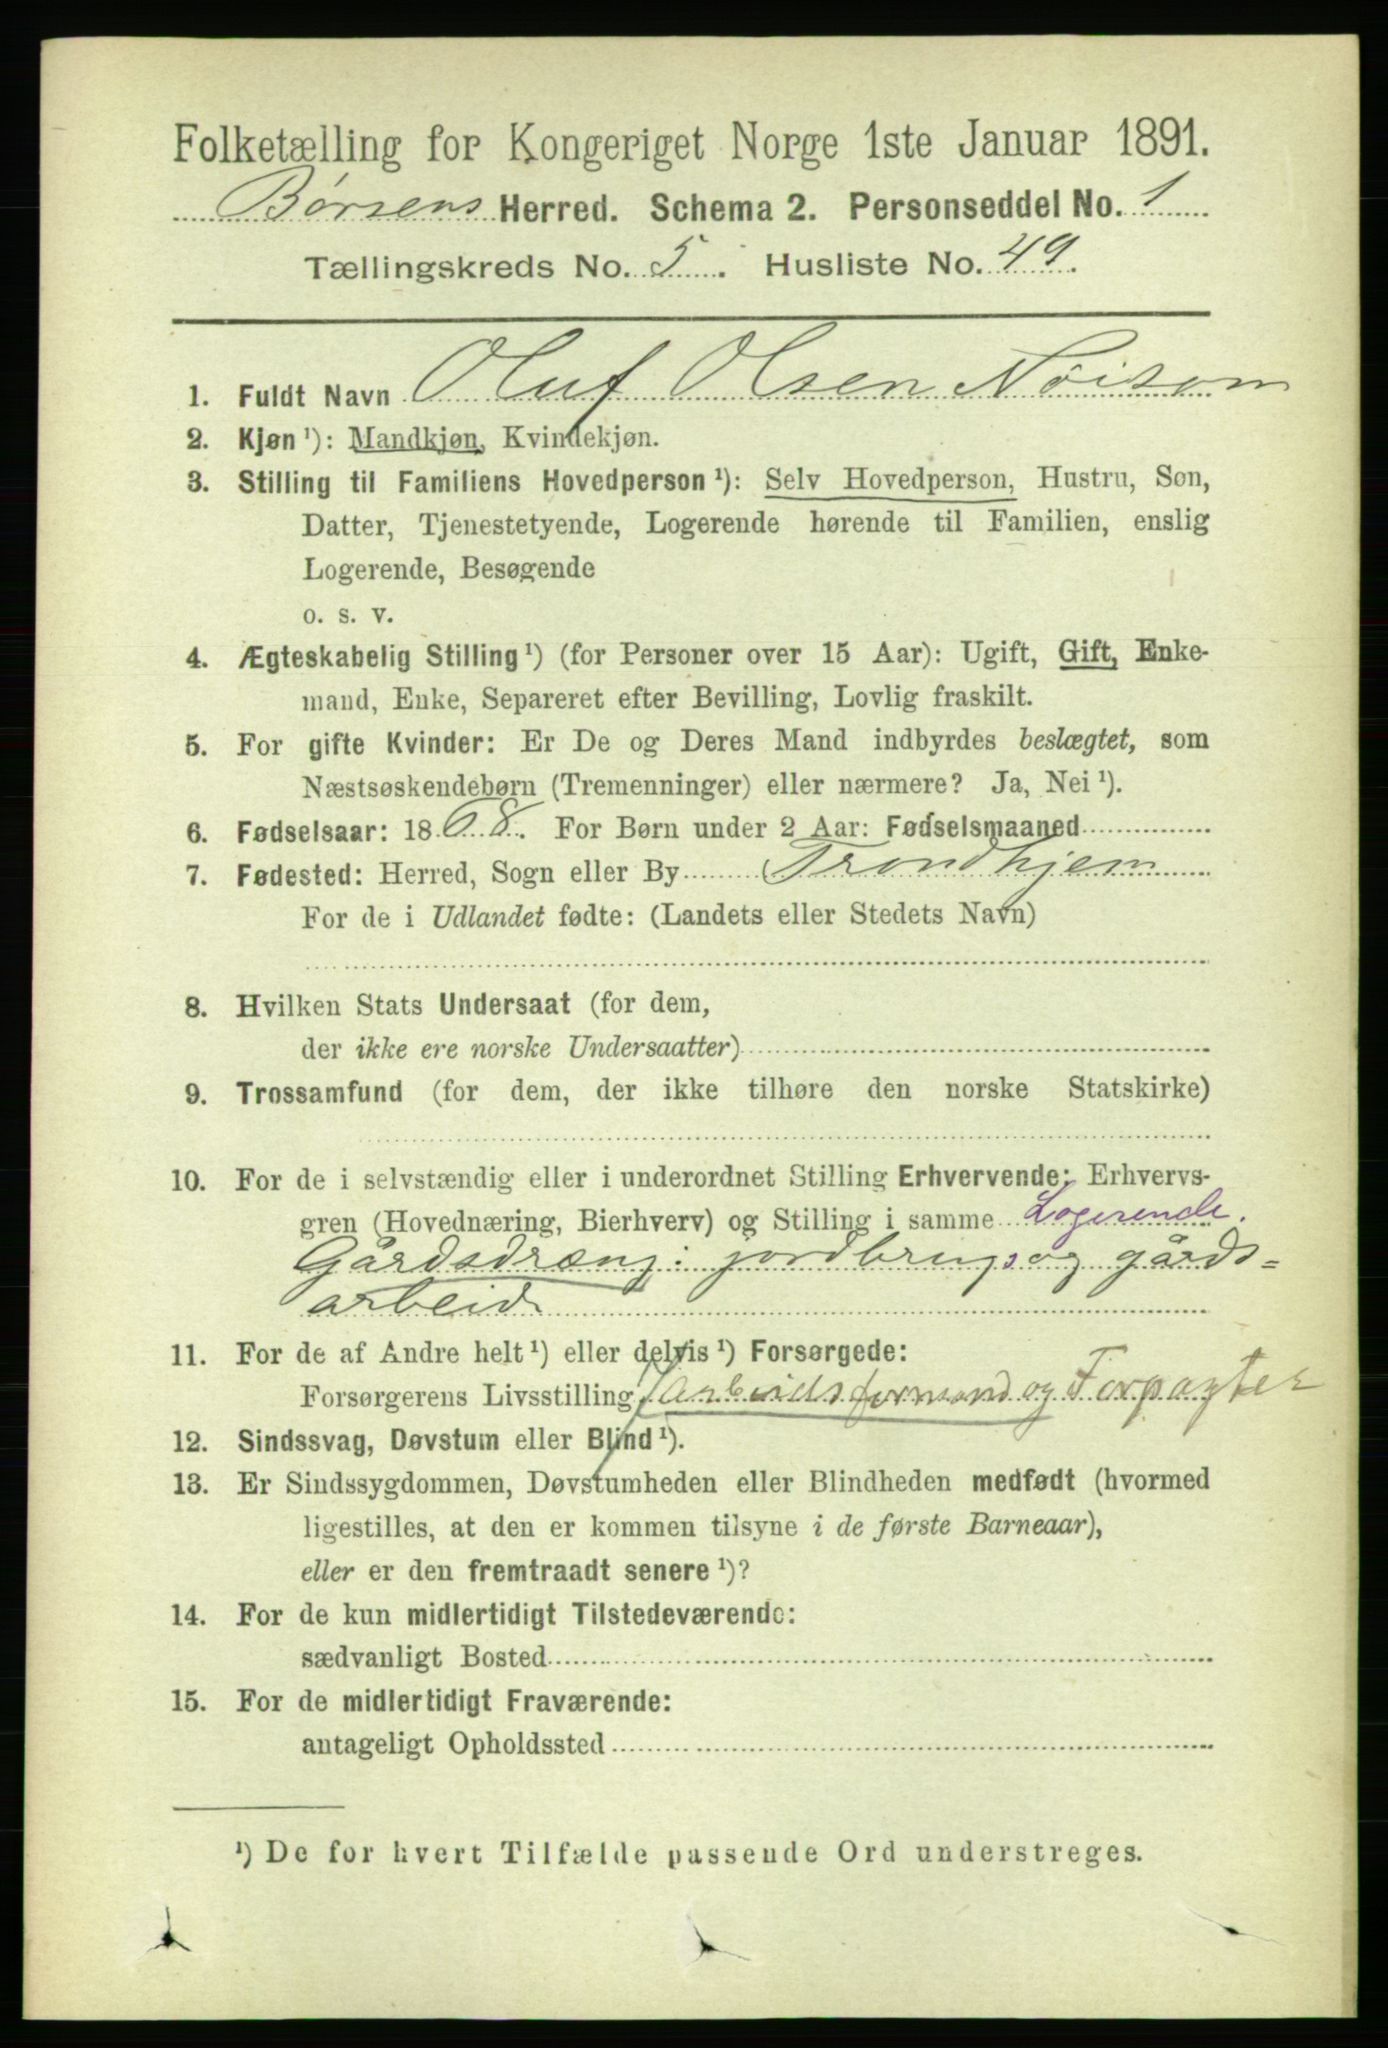 Folketælling for Kongeriget Norge 1ste Januar 1891.
Børsens Herred. Schema 2. Personseddel No. 1
Tællingskreds No. 5. Husliste No. 49.
1. Fuldt Navn Oluf Olsen Nöisom
2. Kjøn ¹): Mandkjøn, Kvindekjøn.
3. Stilling til Familiens Hovedperson ¹): Selv Hovedperson, Hustru, Søn,
Datter, Tjenestetyende, Logerende hørende til Familien, enslig
Logerende, Besøgende
o. s. v.
4. Ægteskabelig Stilling ¹) (for Personer over 15 Aar): Ugift, Gift, Enke-
mand, Enke, Separeret efter Bevilling, Lovlig fraskilt.
5. For gifte Kvinder: Er De og Deres Mand indbyrdes beslægtet, som
Næstsøskendebørn (Tremenninger) eller nærmere? Ja, Nei ¹).
6. Fødselsaar: 1868. For Børn under 2 Aar: Fødselsmaaned
7. Fødested: Herred, Sogn eller By Trondhjem
For de i Udlandet fødte: (Landets eller Stedets Navn)
8. Hvilken Stats Undersaat (for dem,
der ikke ere norske Undersaatter)
9. Trossamfund (for dem, der ikke tilhøre den norske Statskirke)
10. For de i selvstændig eller i underordnet Stilling Erhvervende: Erhvervs-
gren (Hovednæring, Bierhverv) og Stilling i samme Logerende.
Gårdsdræng: jordbrugs og gårds-
arbeid
11. For de af Andre helt ¹) eller delvis ¹) Forsørgede:
Forsørgerens Livsstilling Arbeidsformand og Forpagter
12. Sindssvag, Døvstum eller Blind ¹).
13. Er Sindssygdommen, Døvstumheden eller Blindheden medfødt (hvormed
ligestilles, at den er kommen tilsyne i de første Barneaar),
eller er den fremtraadt senere ¹)?
14. For de kun midlertidigt Tilstedeværende:
sædvanligt Bosted
15. For de midlertidigt Fraværende:
antageligt Opholdssted
¹) De for hvert Tilfælde passende Ord understreges.